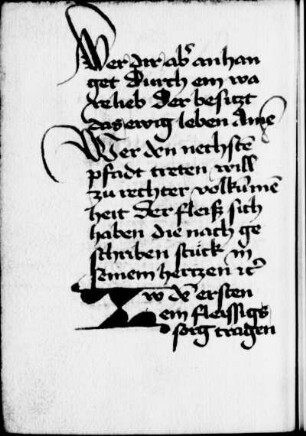 Wer dir abˀ anhan
get Durch ein wa
re lieb Der besitzt
das ewig leben Amē
Wer den nechstē
pfadt treten will
zu rechter volkūmē
heit Der fleiß sich
haben die nach ge
schriben stück in
seinem hertzen
zw dē ersten
ein fleissigs
sorg tragen